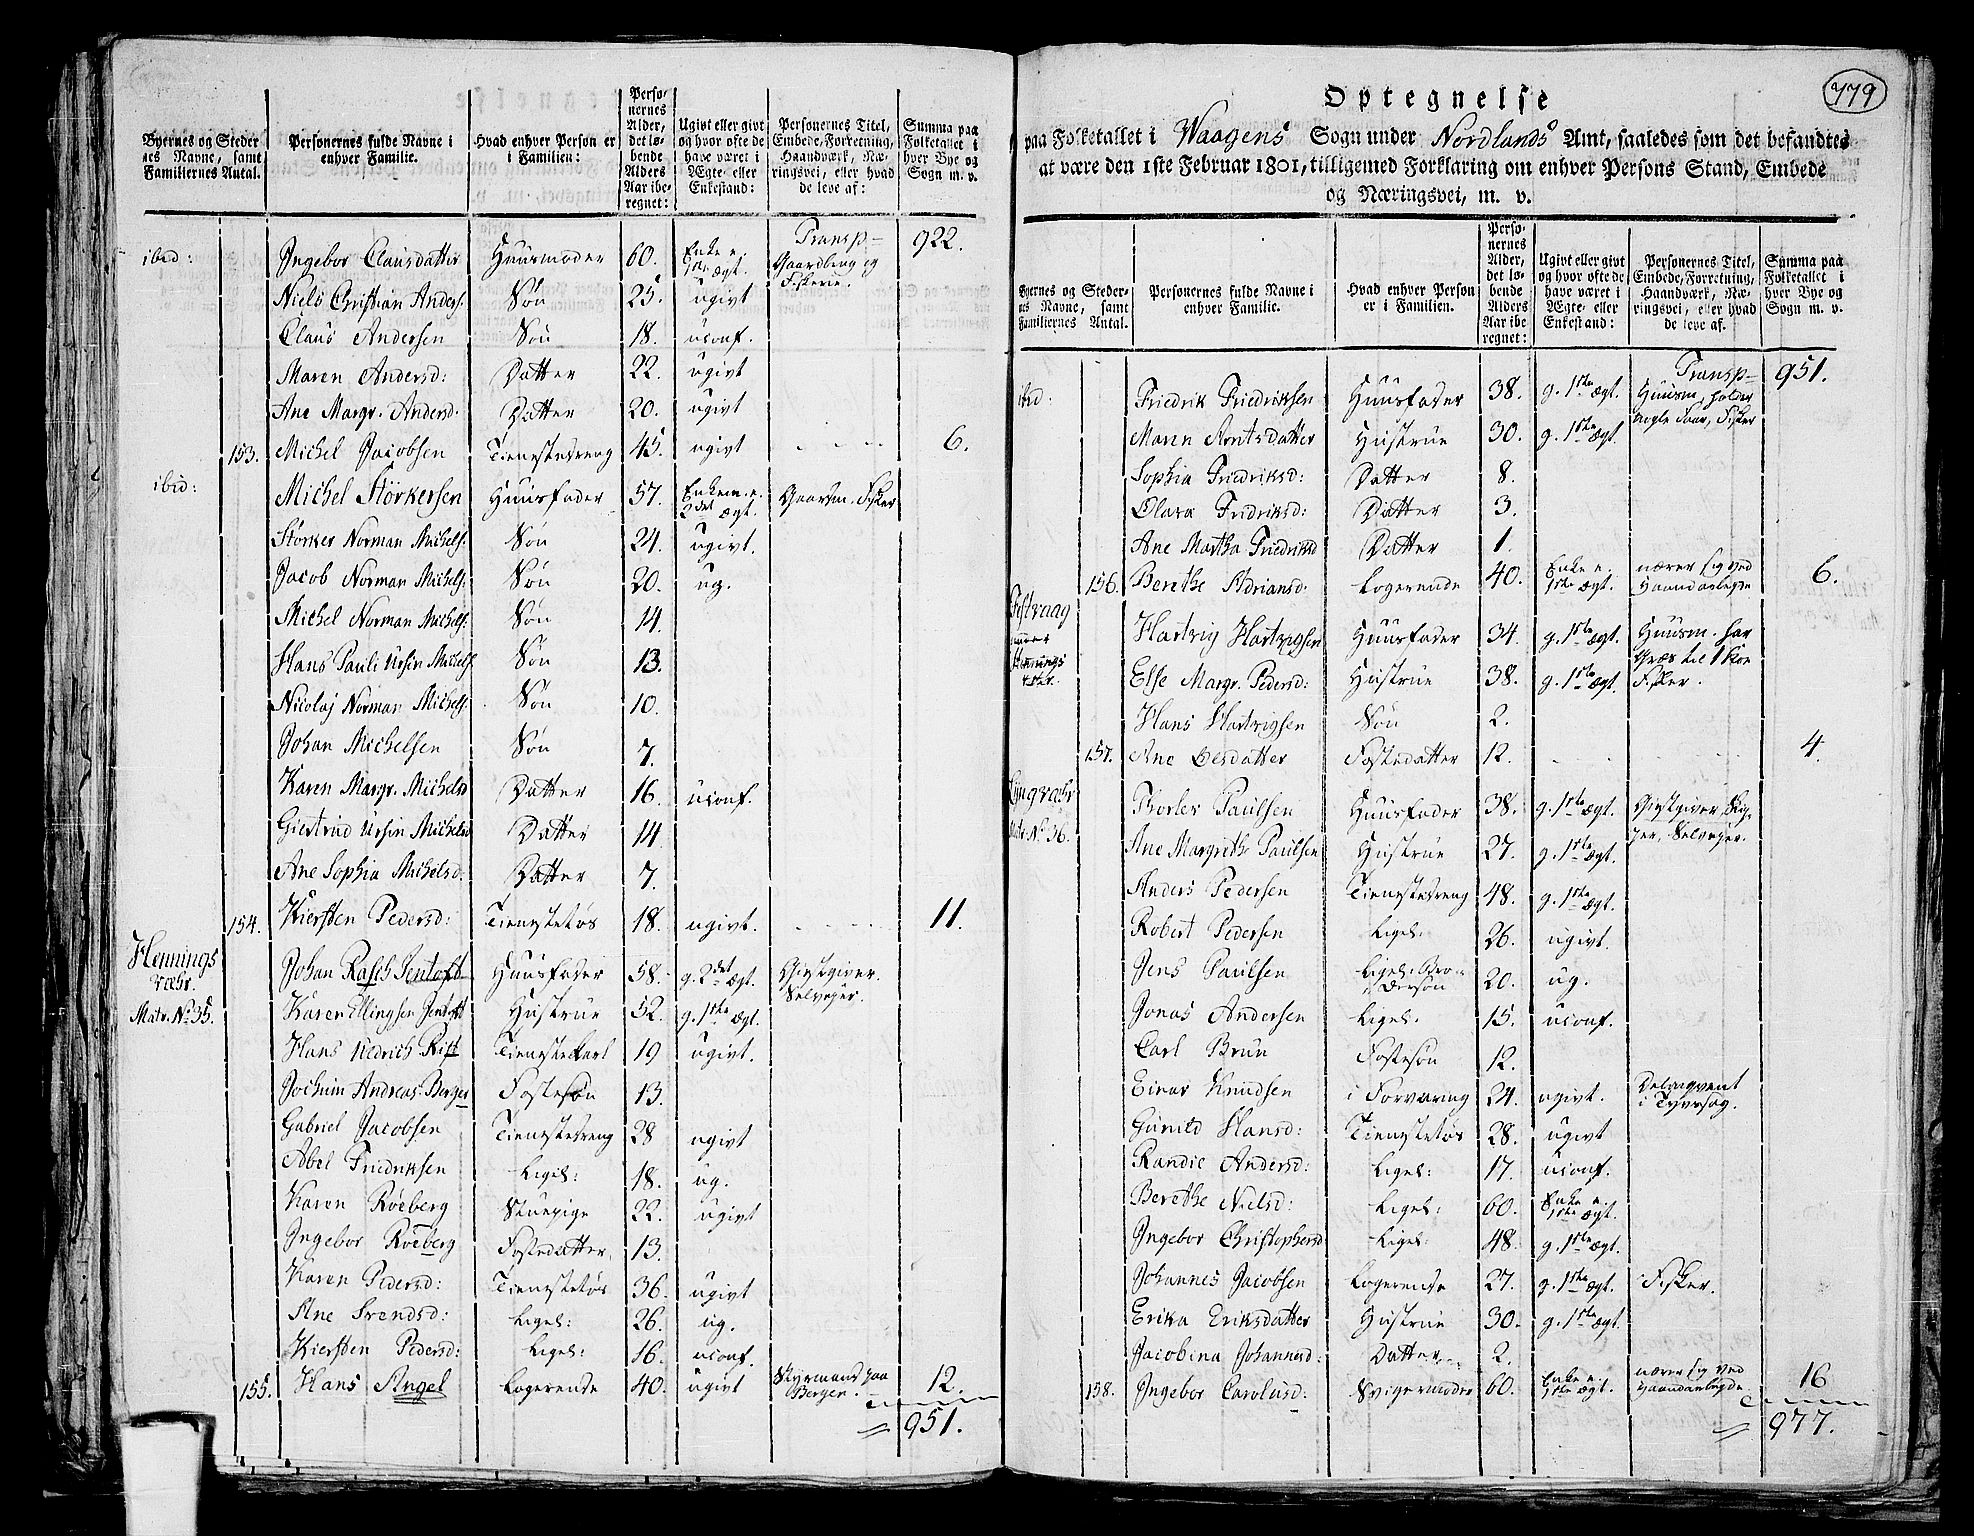 Byernes og Steder
nes Navne, samt
Familiernes Antal.
Personernes fulde Navne i
enhver Familie.
Hvad enhver Person er
i Familien:
Perso-
nernes
Alder,
det lø-
bende
Alders
Aar ibe-
regnet:
Ugivt eller givt
og hvor ofte de
have været i
Ægte- eller
Enkestand:
Personernes Titel,
Embede, Forretning,
Haandværk, Næ-
ringsvei, eller hvad
de leve af:
Summa paa
Folketallet i
hver Bye og
Sogn m. v.
Transp- 922.
ibid: Ingebor Clausdatter Huusmoder 60. Enke e. 1ste ægt. Gaardbrug og Fiskerie.
Niels Christian Anders. Søn 25. ugivt
Claus Andersen Søn 18. uconf.
Maren Andersd: Datter 22. ugivt
Ane Margr. Andersd. Datter 20. ugivt
153. Michel Jacobsen Tienestedreng 45. ugivt 6.
ibid: Michel Störkersen Huusfader 57. Enkem. e. 2det ægt. Gaardm. Fisker
Störker Norman Michels: Søn 24. ugivt.
Jacob Norman Michels: Søn 20. ug.
Michel Norman Michels: Søn 14.
Hans Pauli Ursin Michels: Søn 13.
Nicolaj Norman Michels: Søn 10.
Johan Michelsen Søn 7.
Karen Margr. Michelsd Datter 16. uconf.
Giertrud Ursin Michelsd Datter 14.
Ane Sophia Michelsd: Datter 7.
154. Kiersten Pedersd: Tienestetøs 18. ugivt. 11.
Hennings
væhr.
Matr. No 35.
Johan Rasch Jentoft Huusfader 58. g. 2det ægt. Giestgiver. Selvejer.
Karen Ellingsen Jentoft Hustrue 52. g. 1ste ægt.
Hans Hedrich Rist Tienestekarl 19 ugivt.
Jochum Andreas Berger Fostesøn 13.
Gabriel Jacobsen Tienestedreng 28 ugivt
Abel Fredriksen Ligel: 18. ug.
Karen Röeberg Stuepige 22. ugivt
Ingebor Röeberg Fostedatter 13.
Karen Pedersd: Tienestetøs 36. ugivt
Ane Svendsd: Ligel: 26. ug.
Kiersten Pedersd: Ligel: 16. uconf.
155. Hans Angel Logerende 40. ugivt Styrmand paa Bergen. 12.
951.
779
Optegnelse
paa Folketallet i Waagens Sogn under Nordlands Amt, saaledes som det befandtes
at være den 1ste Februar 1801, tilligemed Forklaring om enhver Persons Stand, Embede
og Næringsvei, m. v.
Byernes og Steder-
nes Navne, samt
Familiernes Antal.
Personernes fulde Navne i
enhver Familie.
Hvad enhver Person
er i Familien.
Perso-
nernes
Alder,
det lø-
bende
Alders
Aar ibe-
regnet:
Ugivt eller givt
og hvor ofte de
have været i
Ægte- eller
Enkestand:
Personernes Titel,
Embede, Forretning,
Haandværk, Næ-
ringsvei, eller hvad
de leve af.
Summa paa
Folketallet i
hver Bye og
Sogn m. v.
Transp- 951.
ibid: Fredrik Fredriksen Huusfader 38. g. 1ste ægt. Huusm, holder nogle Faar, Fisker
Maren Arntsdatter Hustrue 30. g. 1ste ægt
Sophia Fredriksd: Datter 8.
Olara Fredriksd: Datter 3.
Ane Martha Fredriksd Datter 1.
156. Berethe Adriansd: Logerende 40. Enke e. 1ste ægt. nærer sig ved Haandarbejde 6.
Festvaag
under
Hennings
væhr.
Hartvig Hartvigsen Huusfader 34. g. 1ste ægt. Huusm. har Græs til 1 Koe Fisker.
Else Margr. Pedersd: Hustrue 38. g. 1ste ægt.
Hans Hartvigsen Søn 2.
157. Ane Olesdatter Fostedatter 12. 4.
Lyngvæhr
Matr. No 36.
Thorler Paulsen Huusfader 38. g. 1ste ægt. Giestgiver, Skipper, Selvejer.
Ane Margrethe Paulsen Hustrue 27. g. 1ste ægt.
Anders Pedersen Tienestedreng 48. g. 1ste ægt.
Robert Pedersen Ligel: 26. ugivt.
Jens Paulsen Ligel: Brodersøn 20. ug.
Jonas Andersen Ligel. 15. uconf.
Carl Brun Fostesøn 12.
Einar Knudsen i Forvaring 24. ugivt. Delinqvent i Tyvesag.
Gunild Hansd: Tienestetøs 28. ugivt
Randie Andersd: Ligel: 17. uconf.
Berethe Nielsd: Ligel: 60. Enke e. 1ste ægt.
Ingebor Christophersd Ligel: 48. g. 1ste ægt.
Johannes Jacobsen Logerende 27. g. 1ste ægt. Fisker.
Erika Eriksdatter Hustrue 30. g. 1ste ægt.
Jacobina Johannesd: Datter 2.
158. Ingebor Carolusd: Svigermoder 60. Enke e. 1ste ægt. nærer sig ved Haandarbejde 16
977.